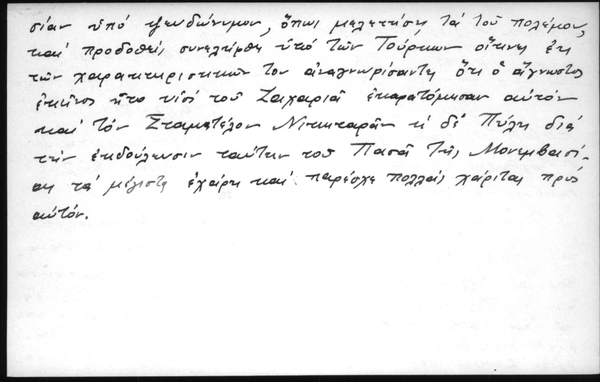 σίαν ὑπό ψευδώνυμον, ὅπως μελετήσῃ τά τοῦ πολέμου,
καί προδοθείς συνελήφθη ὑπό τῶν Τούρκων οἵτινες ἐκ
τῶν χαρακτηριστικῶν του ἀναγνωρίσαντες ὅτι ὁ ἄγνωστος
ἐκεῖνος ἦτο υἱός τοῦ Ζαχαριᾶ ἐκαρατόμησαν αὐτόν
καί τόν Σταματέλον Νικηταρᾶν ἡ δέ Πύλη διά
τήν ἐκδούλευσιν ταύτην τοῦ Πασᾶ τῆς Μονεμβασί-
ας τά μέγιστα ἐχάρη καί παρέσχε πολλάς χάριτας πρός
αὐτόν.